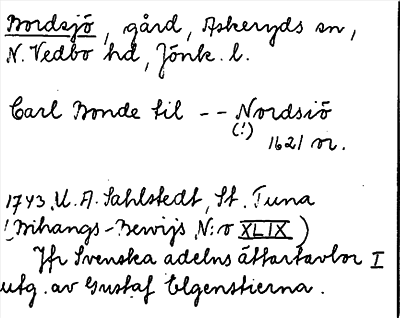 Bordsjö, gård, Askeryds sn,
N. Vedbo hd, Jönk. l.
Carl Bonde til -- Nordsiö
(!)
1621 or.
1743 U. A. Sahlstedt, St. Tuna
(Bihangs-Bewijs N:o XLIX)
Jfr Svenska adelns ättartavlor I
utg. av Gustaf Elgenstierna.